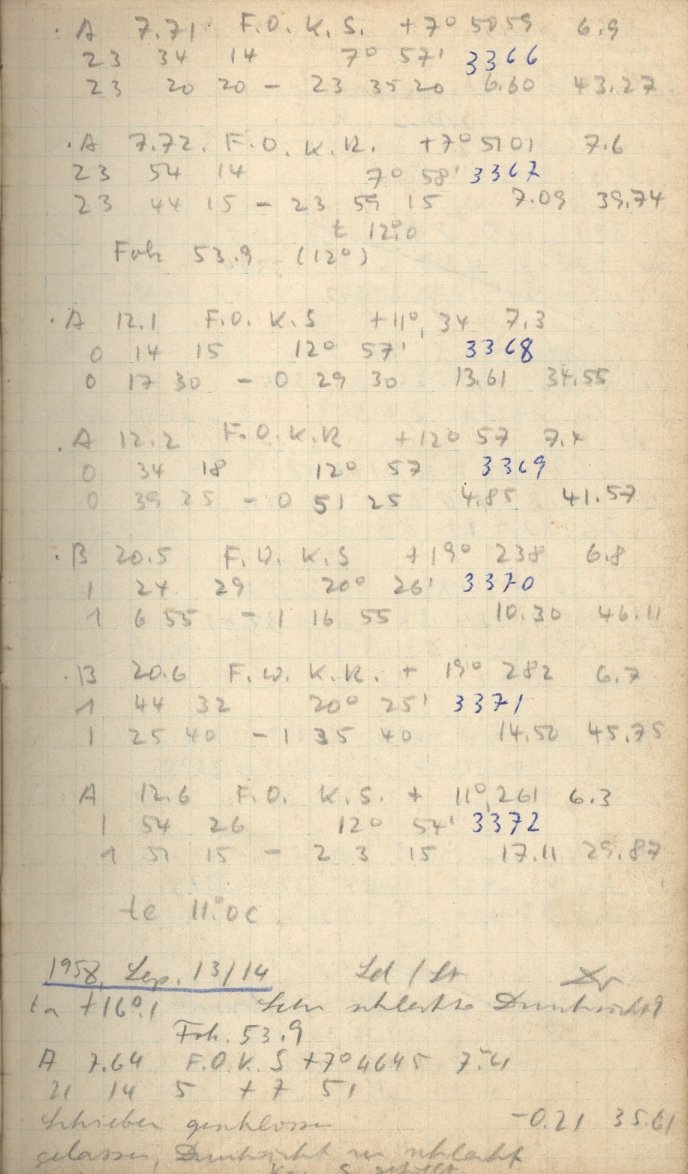 · A 7.71 F.O.K.S. +7° 5059 6.9
23 34 14 7° 57' 3366
23 20 20 – 23 35 20 6.60 43.27
· A 7.72. F.O.K.R. +7° 5101 7.6
23 54 14 7° 58' 3367
23 44 15 – 23 59 15 7.09 39.74
t 12°.0
Fok 53.9 (12°)
· A 12.1 F.O. K.S +11°, 34 7.3
0 14 15 12° 57' 3368
0 17 30 – 0 29 30 13.61 34.55
. A 12.2 F.O.K.R +12° 57 7.4
0 34 18 12° 57 3369
0 39 25 – 0 51 25 4.85 41.57
· B 20.5 F.W. K.S +19° 238 6.8
1 24 29 20° 26' 3370
1 6 55 – 1 16 55 10.30 46.11
· B 20.6 F.W. K.R. + 19° 282 6.7
1 44 32 20° 25' 3371
1 25 40 – 1 35 40 14.50 45.75
A 12.6 F.O. K.S. + 11°, 261 6.3
1 54 26 12° 54' 3372
1 51 15 – 2 3 15 17.11 29.87
te 11.°0C
1958, Sep. 13/14 Ld / St
ta +16°.1 Sehr schlechte Durchsicht
Fok. 53.9
A 7.64 F.O.K.S +7° 4645 7.4
21 14 5 +7 51
Schieber geschlossen –0.21 35.61
gelassen, Durchsicht zu schlecht